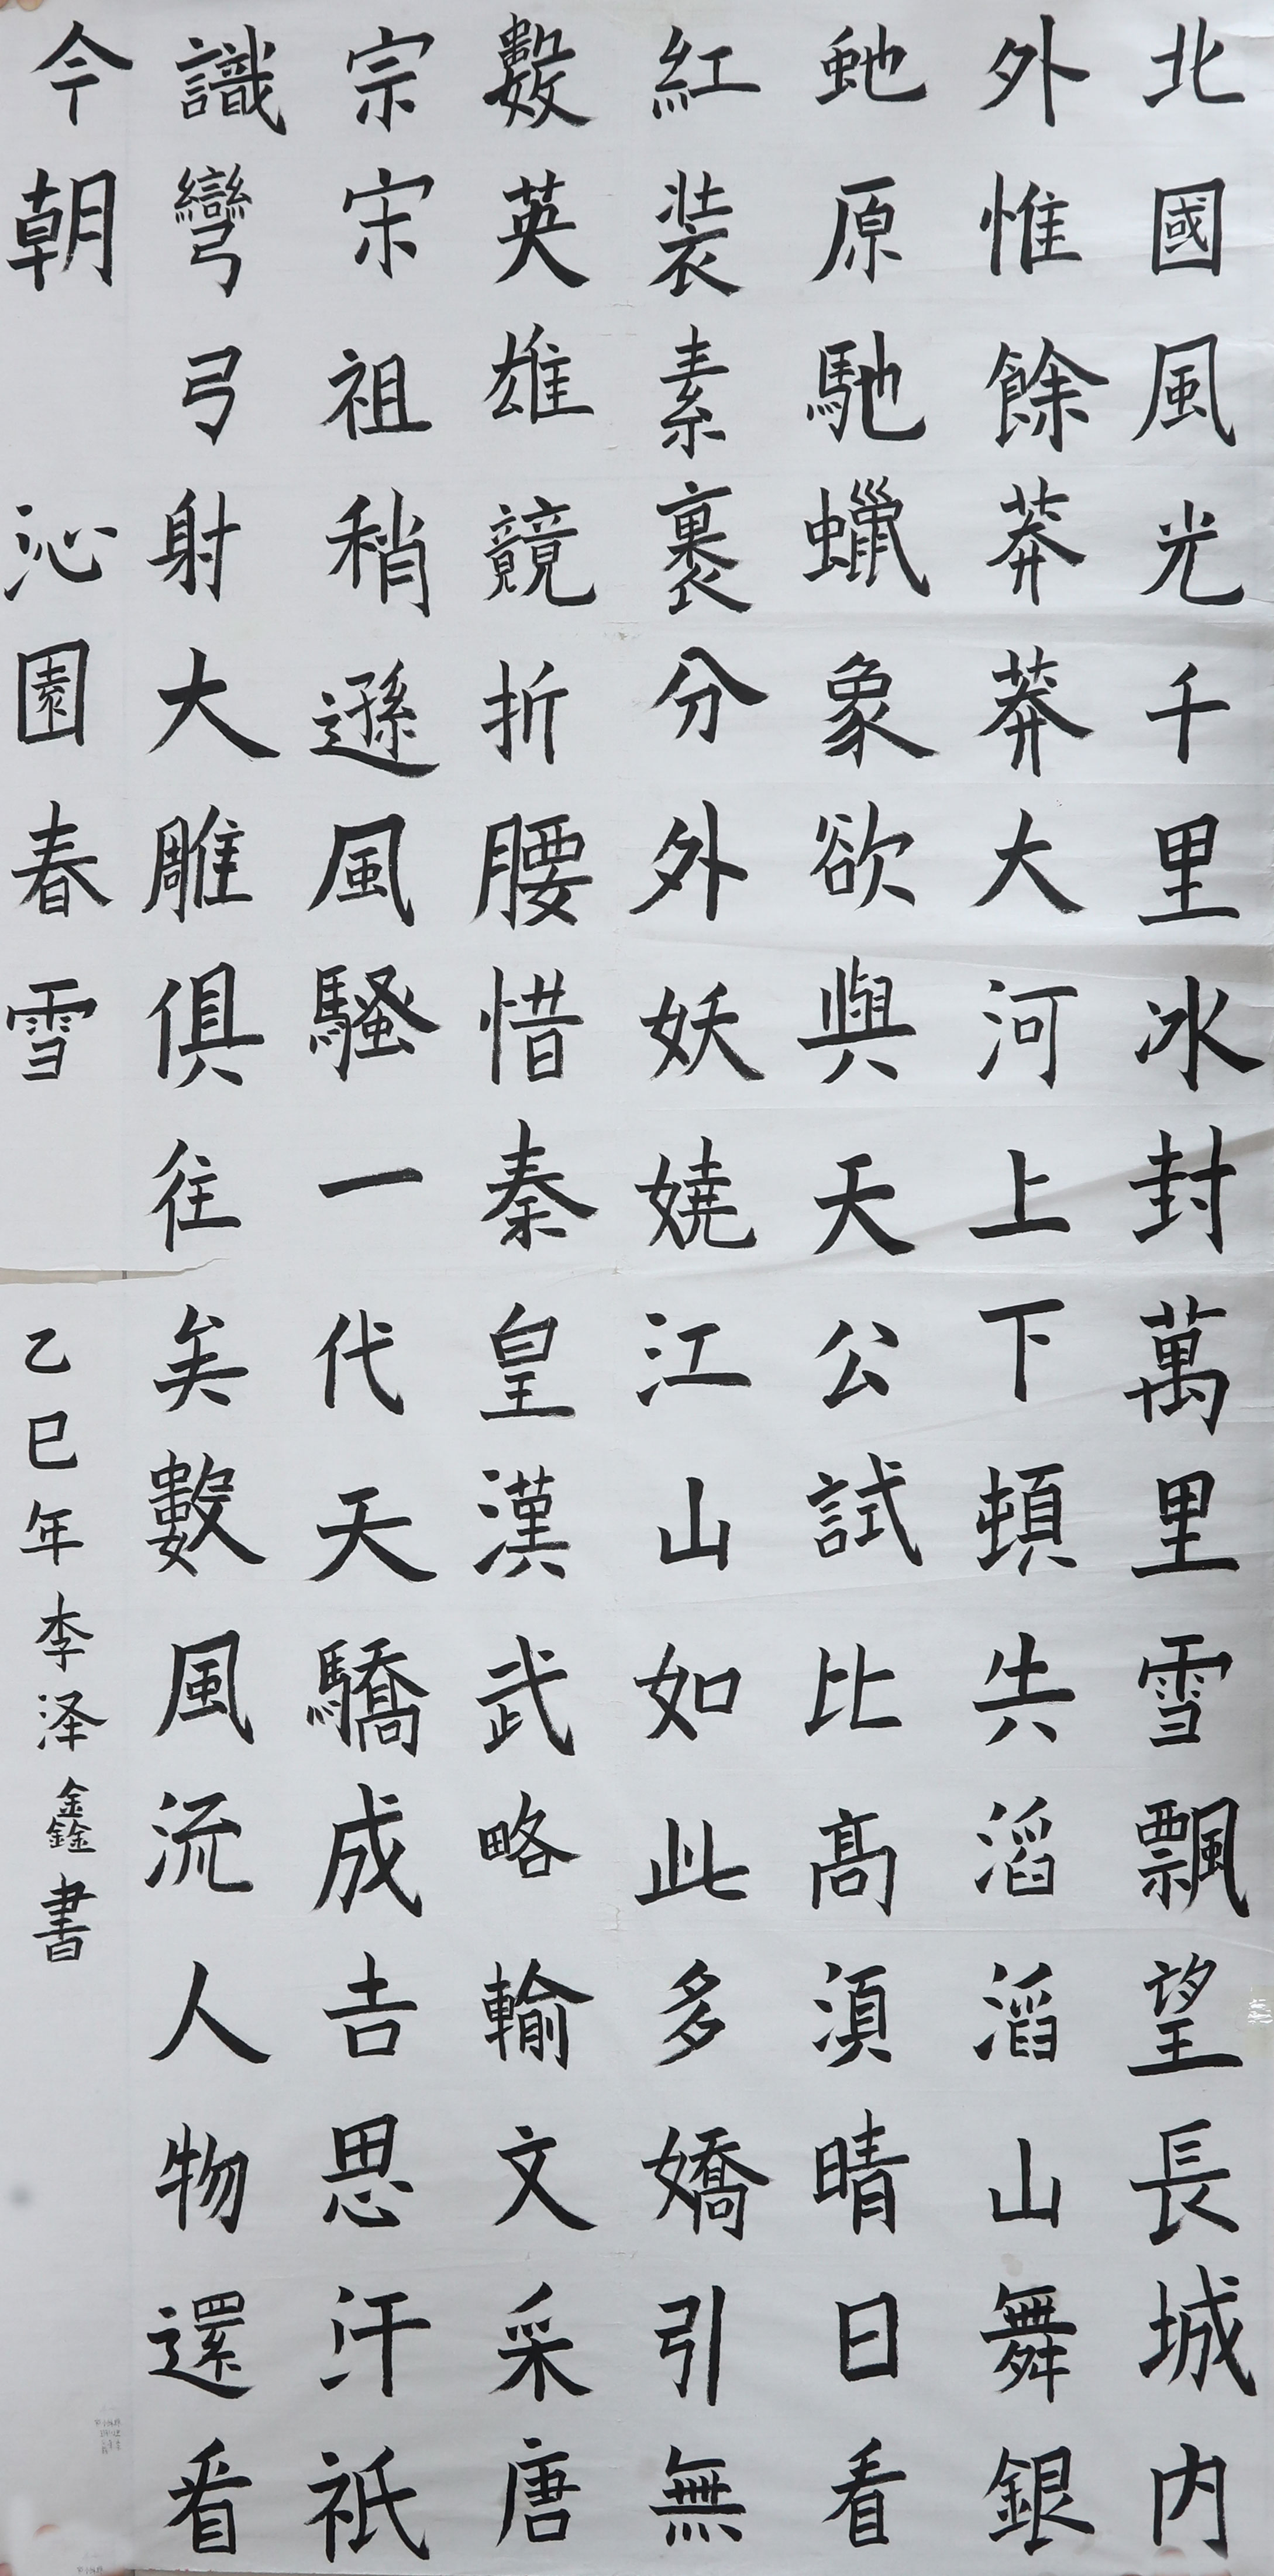 北國風光千里冰封萬里雪飄望長城内
外惟餘莽莽大河上下頓失滔滔山舞銀
虵原馳蠟象欲與天公試比髙湏晴日看
紅装素裹分外妖嬈江山如此多嬌引無
數英雄競折腰惜秦皇漢武略輸文采唐
宗宋祖稍遜風騷一代天驕成吉思汗祇
識彎弓射大雕俱往矣數風流人物還看
今朝 沁園春雪
乙巳年李泽鑫書